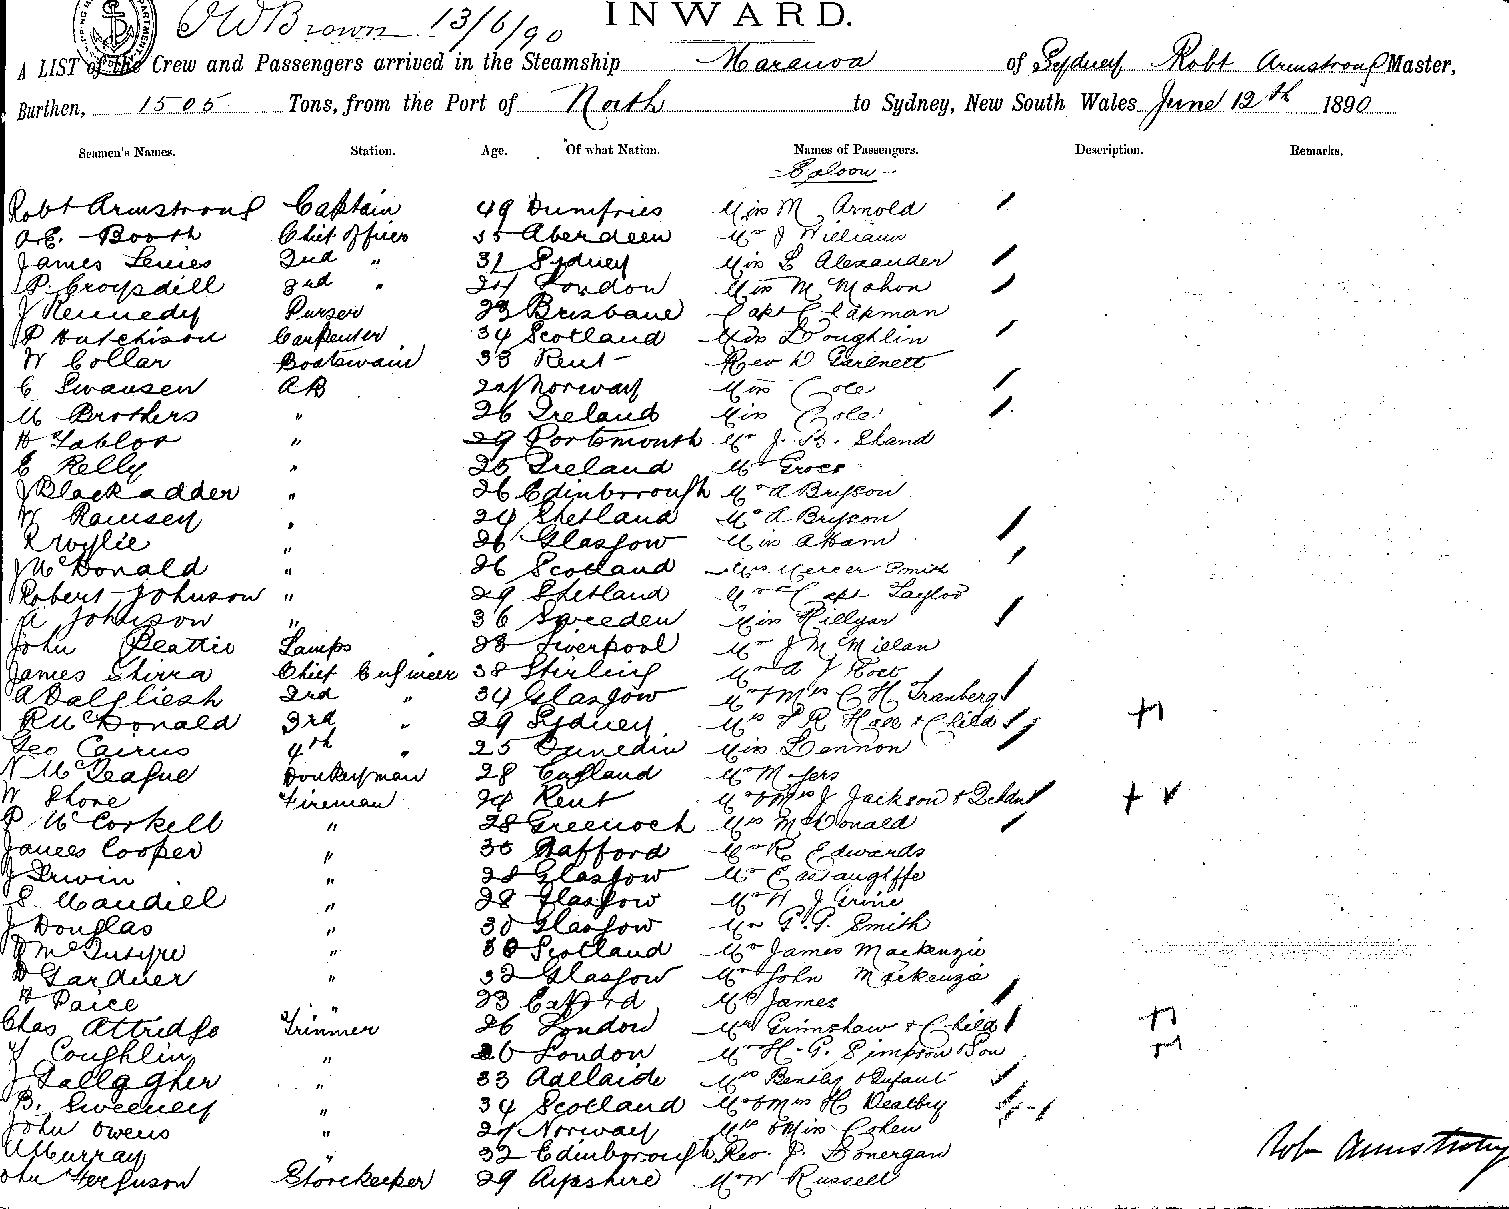 J W Brown 13/6/90
INWARD.
A LIST of the Crew and Passengers arrived in the Steamship Maranoa of Sydney Robt Armstrong Master,
Burthen, 1505 Tons, from the Port of North to Sydney, New South Wales June 12th 1890
Seamen's Names. Station. Age. Of what Nation. Names of Passengers. Description. Remarks.
Saloon
Robt Armstrong Captain 49 Dumfries Miss M Arnold
A.E. Booth Chief Officer 35 Aberdeen Mr J William
James 2nd " 31 Sydney Miss L Alexander
P. Croysdill 3rd " London Miss M Mahon
J Kennedy Purser 23 Brisbane Capt Chapman
P Hutchison Carpenter 34 Scotland Miss Loughlin
W Collar Boatswain 33 Kent Rev D
C Swansen AB Norway Miss Cole
M Brothers " 26 Ireland Miss Cole
H Tablor " 29 Portsmouth Mr J. B. Shand
E Kelly " 25 Ireland Mr
J Blackadder " 26 Edinborough Mr A Bryson
W Ramsey " 24 Shetland Mr A Bryson
R Wylie " 26 Glasgow Miss
J McDonald " 26 Scotland Mrs Mercer Smith
Robert Johnson " 29 Shetland Capt Taylor
A Johnson " 36 Sweeden Miss Hillyar
John Beattie Lamps 28 Liverpool Mr J McMillan
James Shirra Chief Engineer 38 Stirling Mr A J
A Dalgliesh 2nd " 34 Glasgow Mr & Mrs C H Tranberg
R McDonald 3rd " 29 Sydney Mrs F R Hall & Child
Geo Cairns 4th " 25 Dunedin Miss Lennon
N McTeague Donkeyman 28 England Mr Myers
W Shore Fireman 24 Kent Mr & Mrs J Jackson &
P McCorkell " 28 Greenock Mrs McDonald
James Cooper " 30 Mr R Edwards
J Irwin " 28 Glasgow Mr
S. Maudiel " 28 Glasgow Mr W J Irvine
J Douglas " 30 Glasgow Mr G. G. Smith
D McIntyre " 30 Scotland Mr James Mackenzie
D Gardner " 32 Glasgow Mr John Mackenzie
H Paice " 23 Oxford Mrs James
Chas Attridge Trimmer 26 London Mrs Grimshaw & Child
J Coughlin " 20 London Mr H. G. Simpson & Son
J Gallagher " 33 Adelaide Mrs Bensley & Infant
B. Sweeney " 34 Scotland Mr & Mrs H Deatbry
John Owens " Norway Mrs & Miss Cohen
Murray " 32 Edinborough Rev. J. Donergan
John Ferguson Storekeeper 29 Ayrshire Mr W Russell
Robt Armstrong